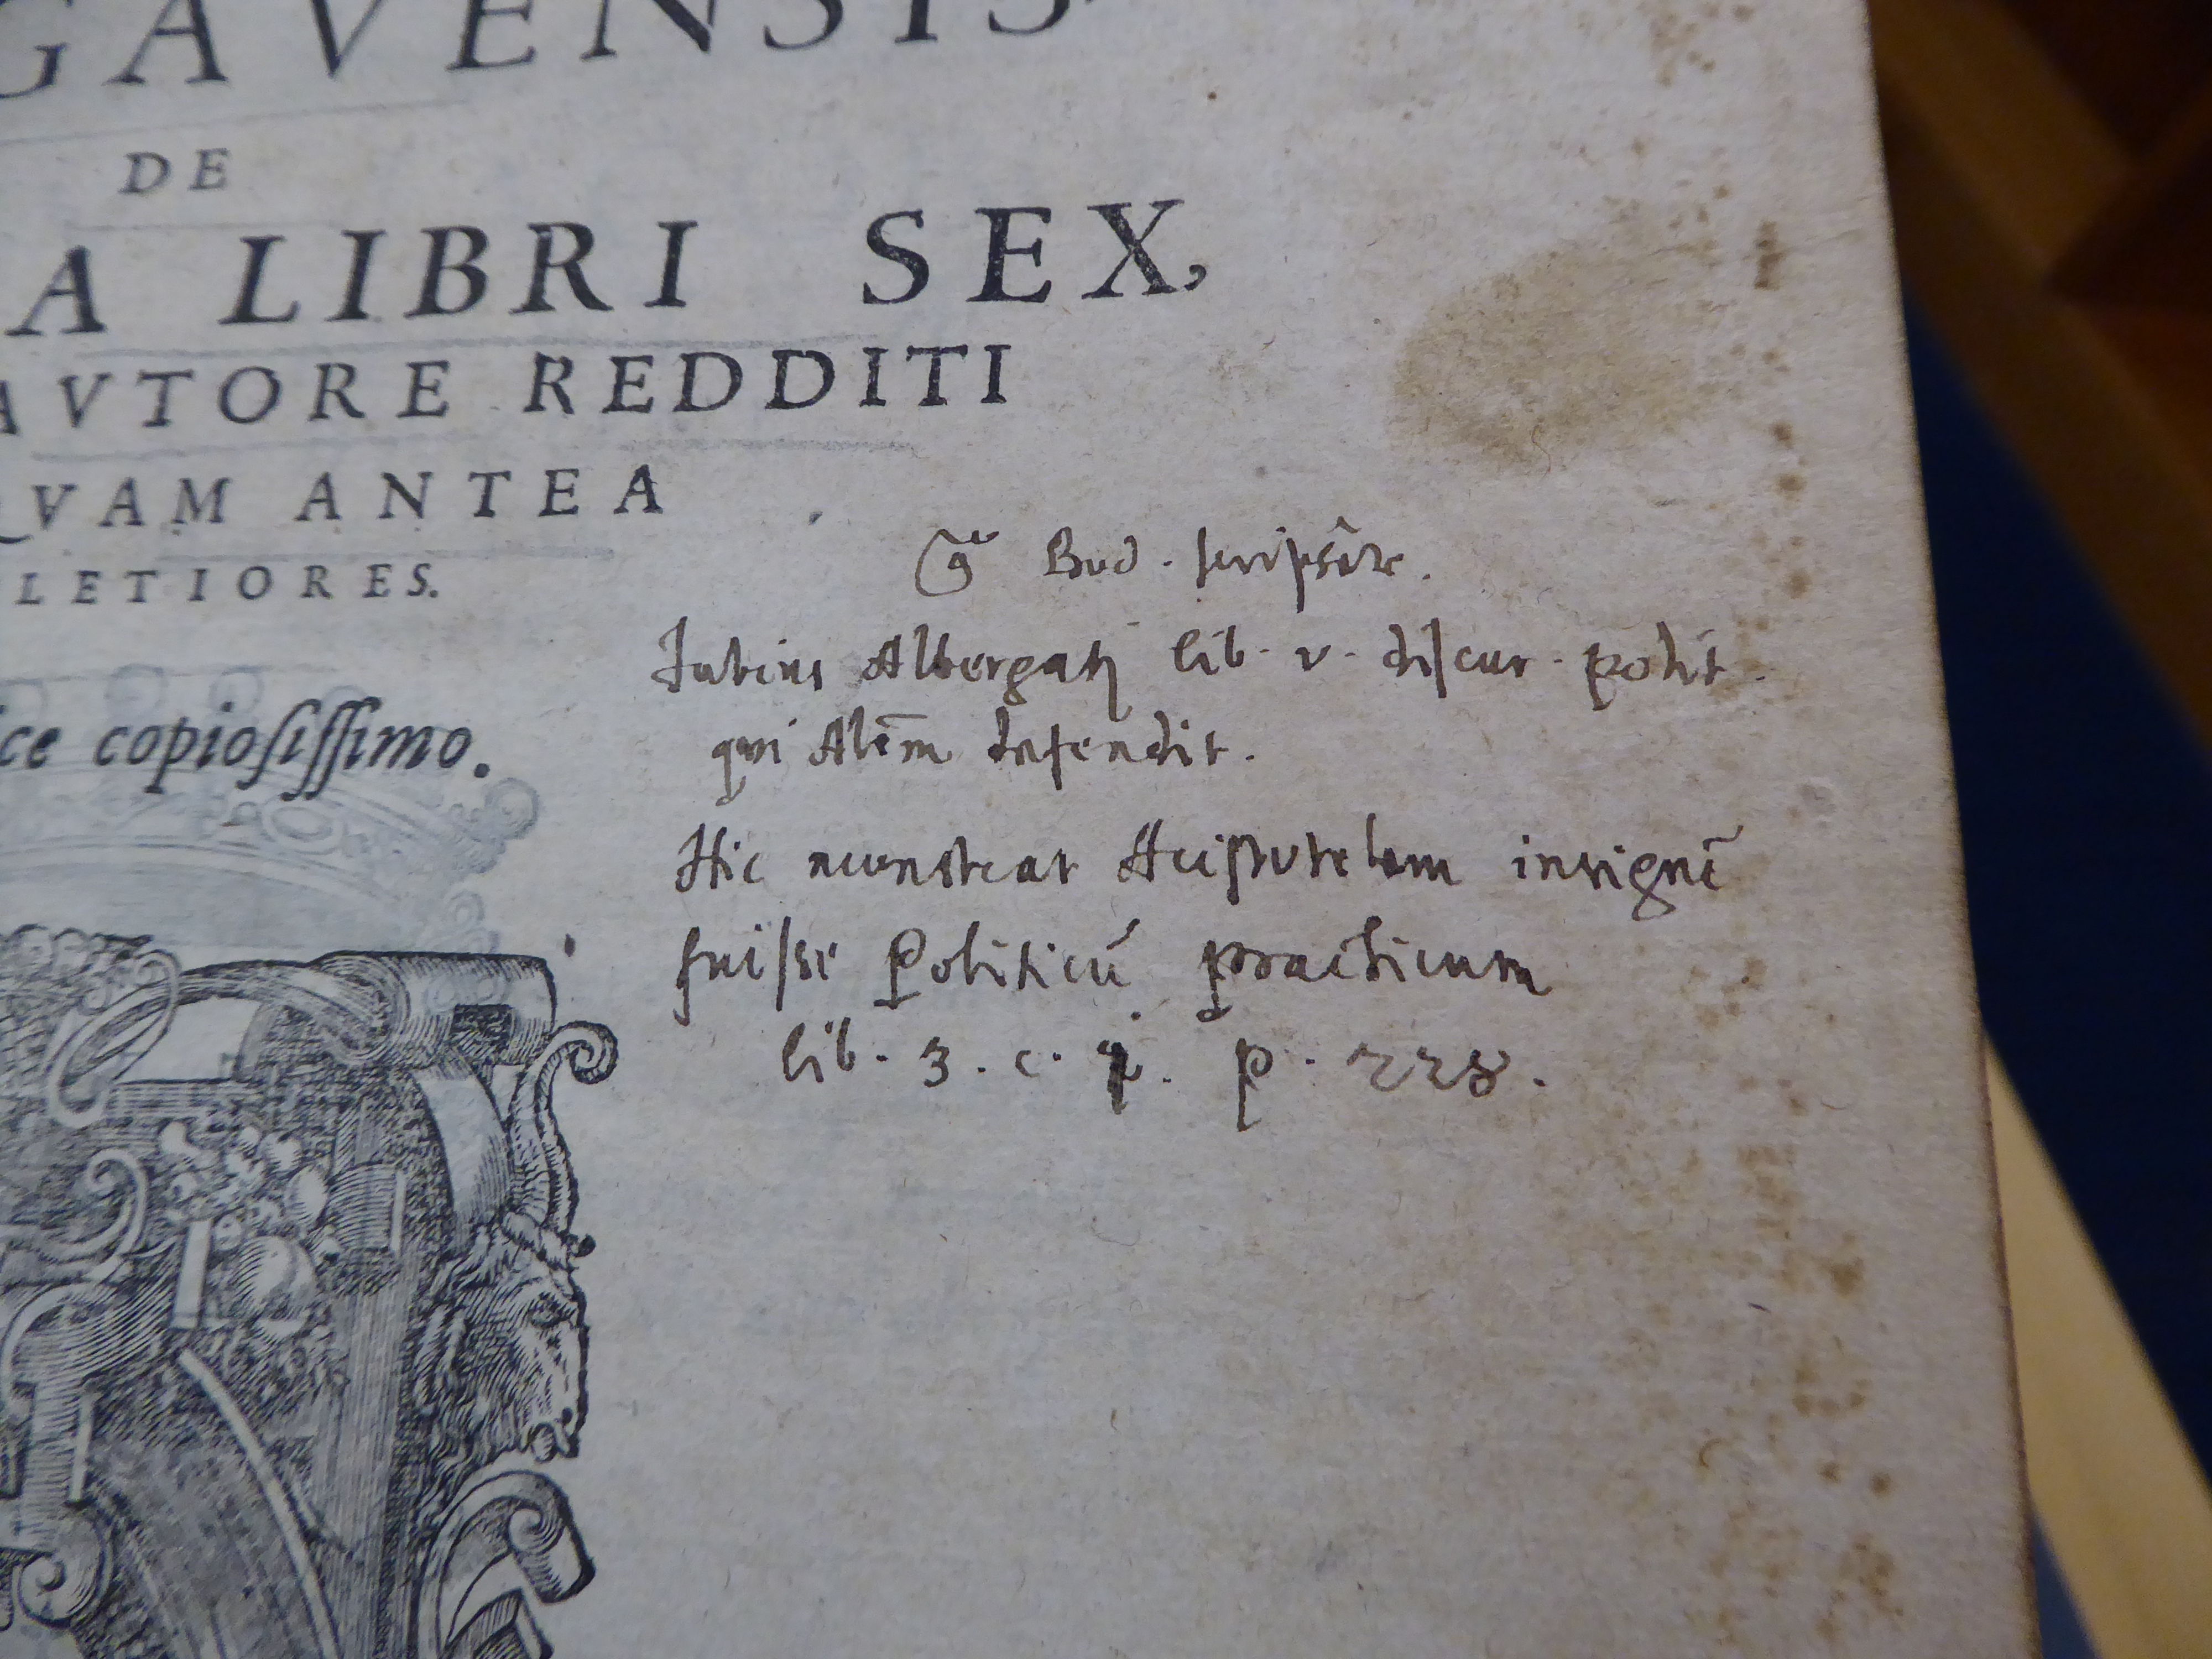 GAVENSIS
DE
A LIBRI SEX,
AVTORE REDDITI
QVAM ANTEA
LETIORES.
ce copiosissimo.
Bod. scripsêre.
Fabius Albergatj lib. v. discur. polit.
qui Alēm defendit.
Hic monstrat Aristotelem insignē
fuisse Politicū practicum
lib. 3. c. p. 228.